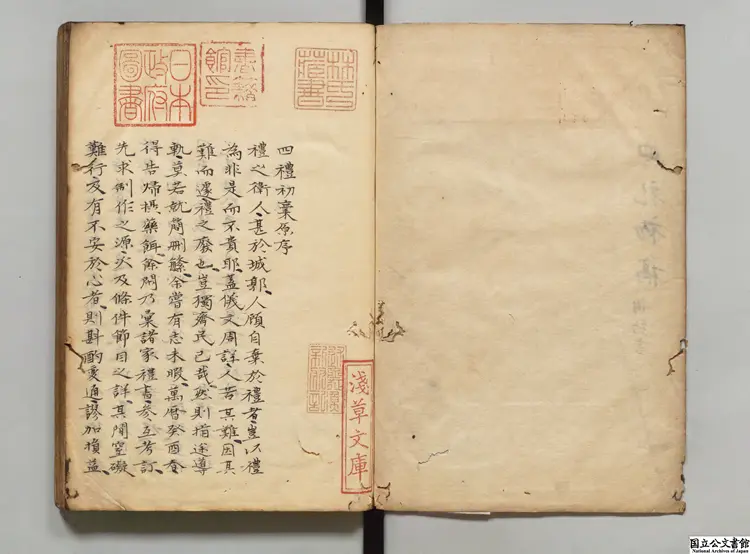 四禮初稾原序
禮之衛人、甚於城郭、人顧自棄於禮者、豈以禮
為非是而不貴耶、蓋儀文周詳、人苦其難、因其
難而遂禮之廢也、豈獨齊民已哉、然則指途導
軌、莫若就簡刪繇、余嘗有志未暇、萬曆癸酉、余
得告歸、攝藥餌、餘閒乃彙諸家禮書、參互考訂、
先求制作之源、次及條件節目之詳、其間窒礙
難行、及有不安於心者、則斟酌變通、謬加損益、
林氏
藏書
書籍
館印
日本
政府
圖書
淺草文庫
四礼初稿
国立公文書館
National Archives of Japan